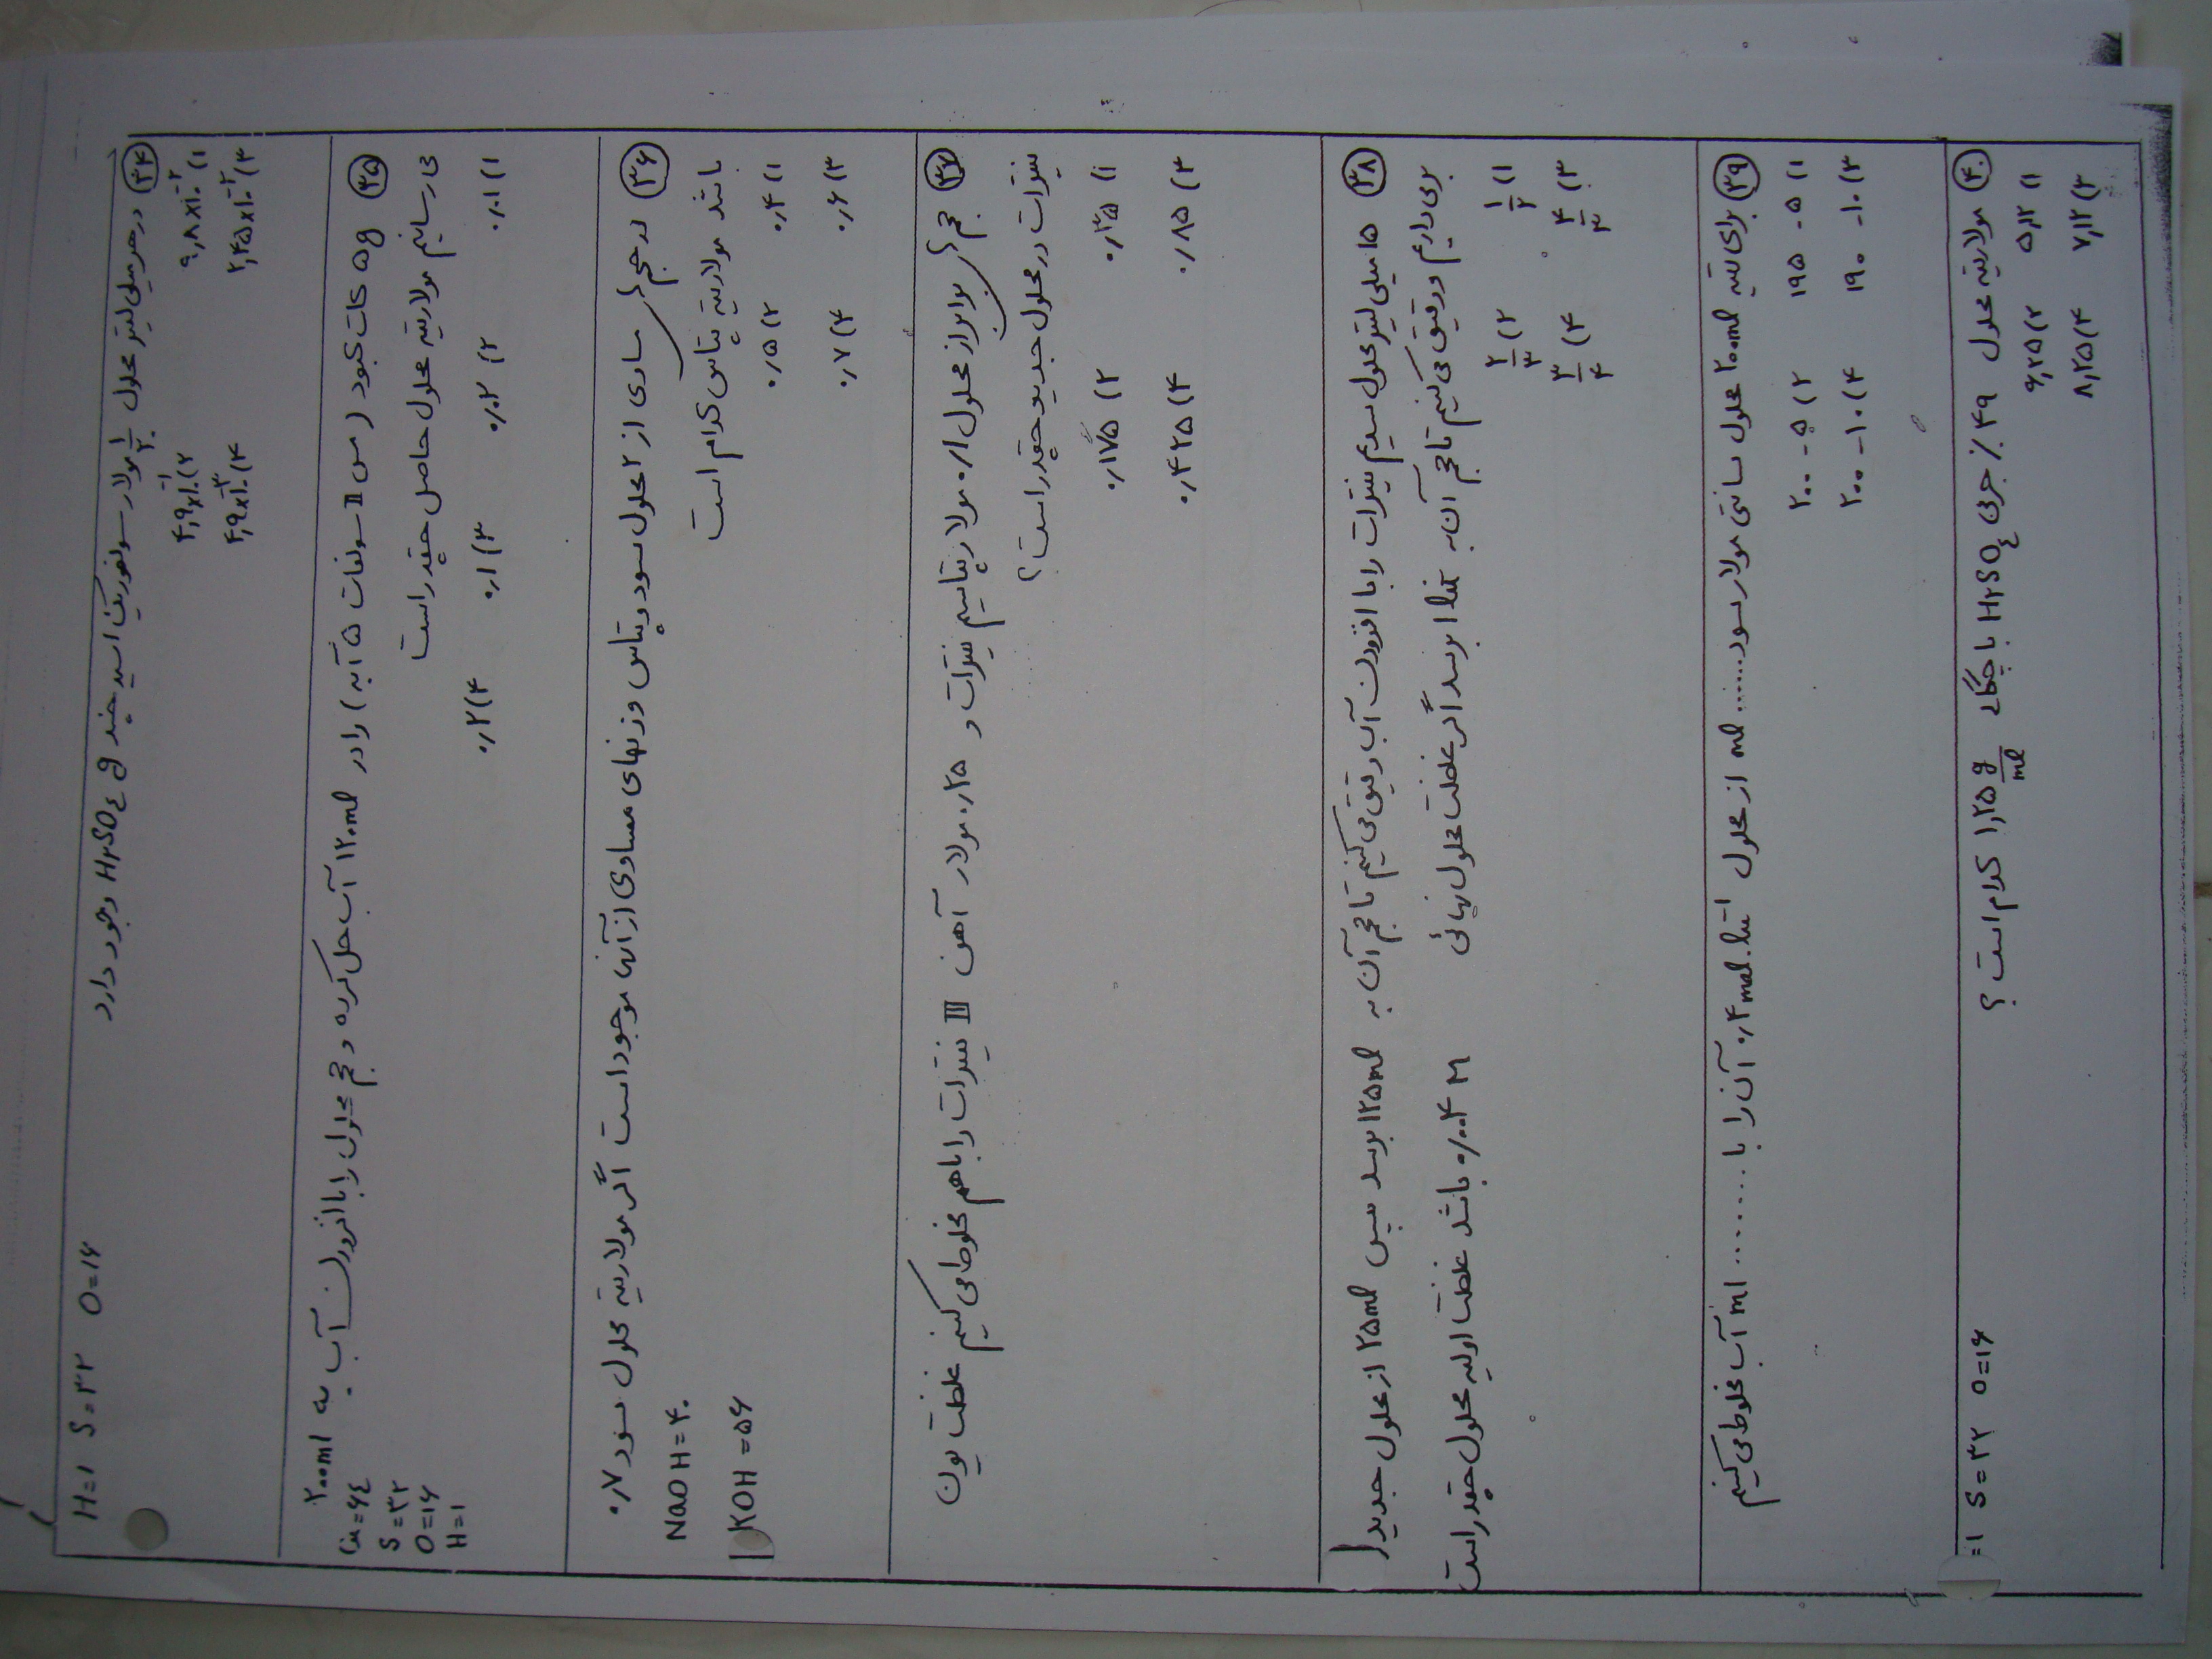 ۳۴ در هر میلی لیتر محلول ۱/۲۰ مولار سولفوریک اسید چند g H۲SO٤ وجود دارد
H=۱ S=۳۲ O=۱۶
۱) ۹٫۸×۱۰⁻۲ ۲) ۴٫۹×۱۰⁻۱
۳) ۲٫۴۵×۱۰⁻۲ ۴) ۴٫۹×۱۰⁻۳
۳۵ ۵g کات کبود (مس II سولفات ۵ آبه) را در ۱۲۰ml آب حل کرده و حجم محلول را با افزودن آب به ۲۰۰ml
می رسانیم مولاریته محلول حاصل چقدر است
Cu=۶٤
S=۳۲
O=۱۶
H=۱
۱) ۰٫۰۱ ۲) ۰٫۰۲ ۳) ۰٫۱ ۴) ۰٫۲
۳۶ در حجم های مساوی از ۲ محلول سود و پتاس وزنهای مساوی از آنها موجود است اگر مولاریته محلول سود ۰٫۷
باشد مولاریته پتاس کدام است
NaOH=۴۰
KOH=۵۶
۱) ۰٫۴ ۲) ۰٫۵
۳) ۰٫۶ ۴) ۰٫۷
۳۷ حجم های برابر از محلول ۰٫۱ مولار پتاسیم نیترات و ۰٫۲۵ مولار آهن III نیترات را باهم مخلوط می کنیم غلظت یون
نیترات در محلول جدید چقدر است؟
۱) ۰٫۳۵ ۲) ۰٫۱۷۵
۳) ۰٫۸۵ ۴) ۰٫۴۲۵
۳۸ ۱۵ میلی لیتر محلول سدیم نیترات را با افزودن آب رقیق می کنیم تا حجم آن به ۱۲۵ml برسد سپس ۲۵ml از محلول جدید را
بر می داریم و رقیق می کنیم تا حجم آن به ۱lit برسد اگر غلظت محلول نهائی ۰٫۰۰۴ M باشد غلظت اولیه محلول چقدر است
۱) ۱/۲ ۲) ۲/۳
۳) ۴/۳ ۴) ۳/۴
۳۹ برای تهیه ۲۰۰ml محلول سانتی مولار سود ...... ml از محلول ۰٫۴ mol.lit⁻¹ آن را با ........ ml آب مخلوط می کنیم
۱) ۵ - ۱۹۵ ۲) ۵ - ۲۰۰
۳) ۱۰ - ۱۹۰ ۴) ۱۰ - ۲۰۰
۴۰ مولاریته محلول ۴۹٪ جرمی H۲SO٤ با چگالی ۱٫۲۵ g/ml کدام است؟
=۱ S=۳۲ O=۱۶
۱) ۵٫۱۲ ۲) ۶٫۲۵
۳) ۷٫۱۲ ۴) ۸٫۲۵